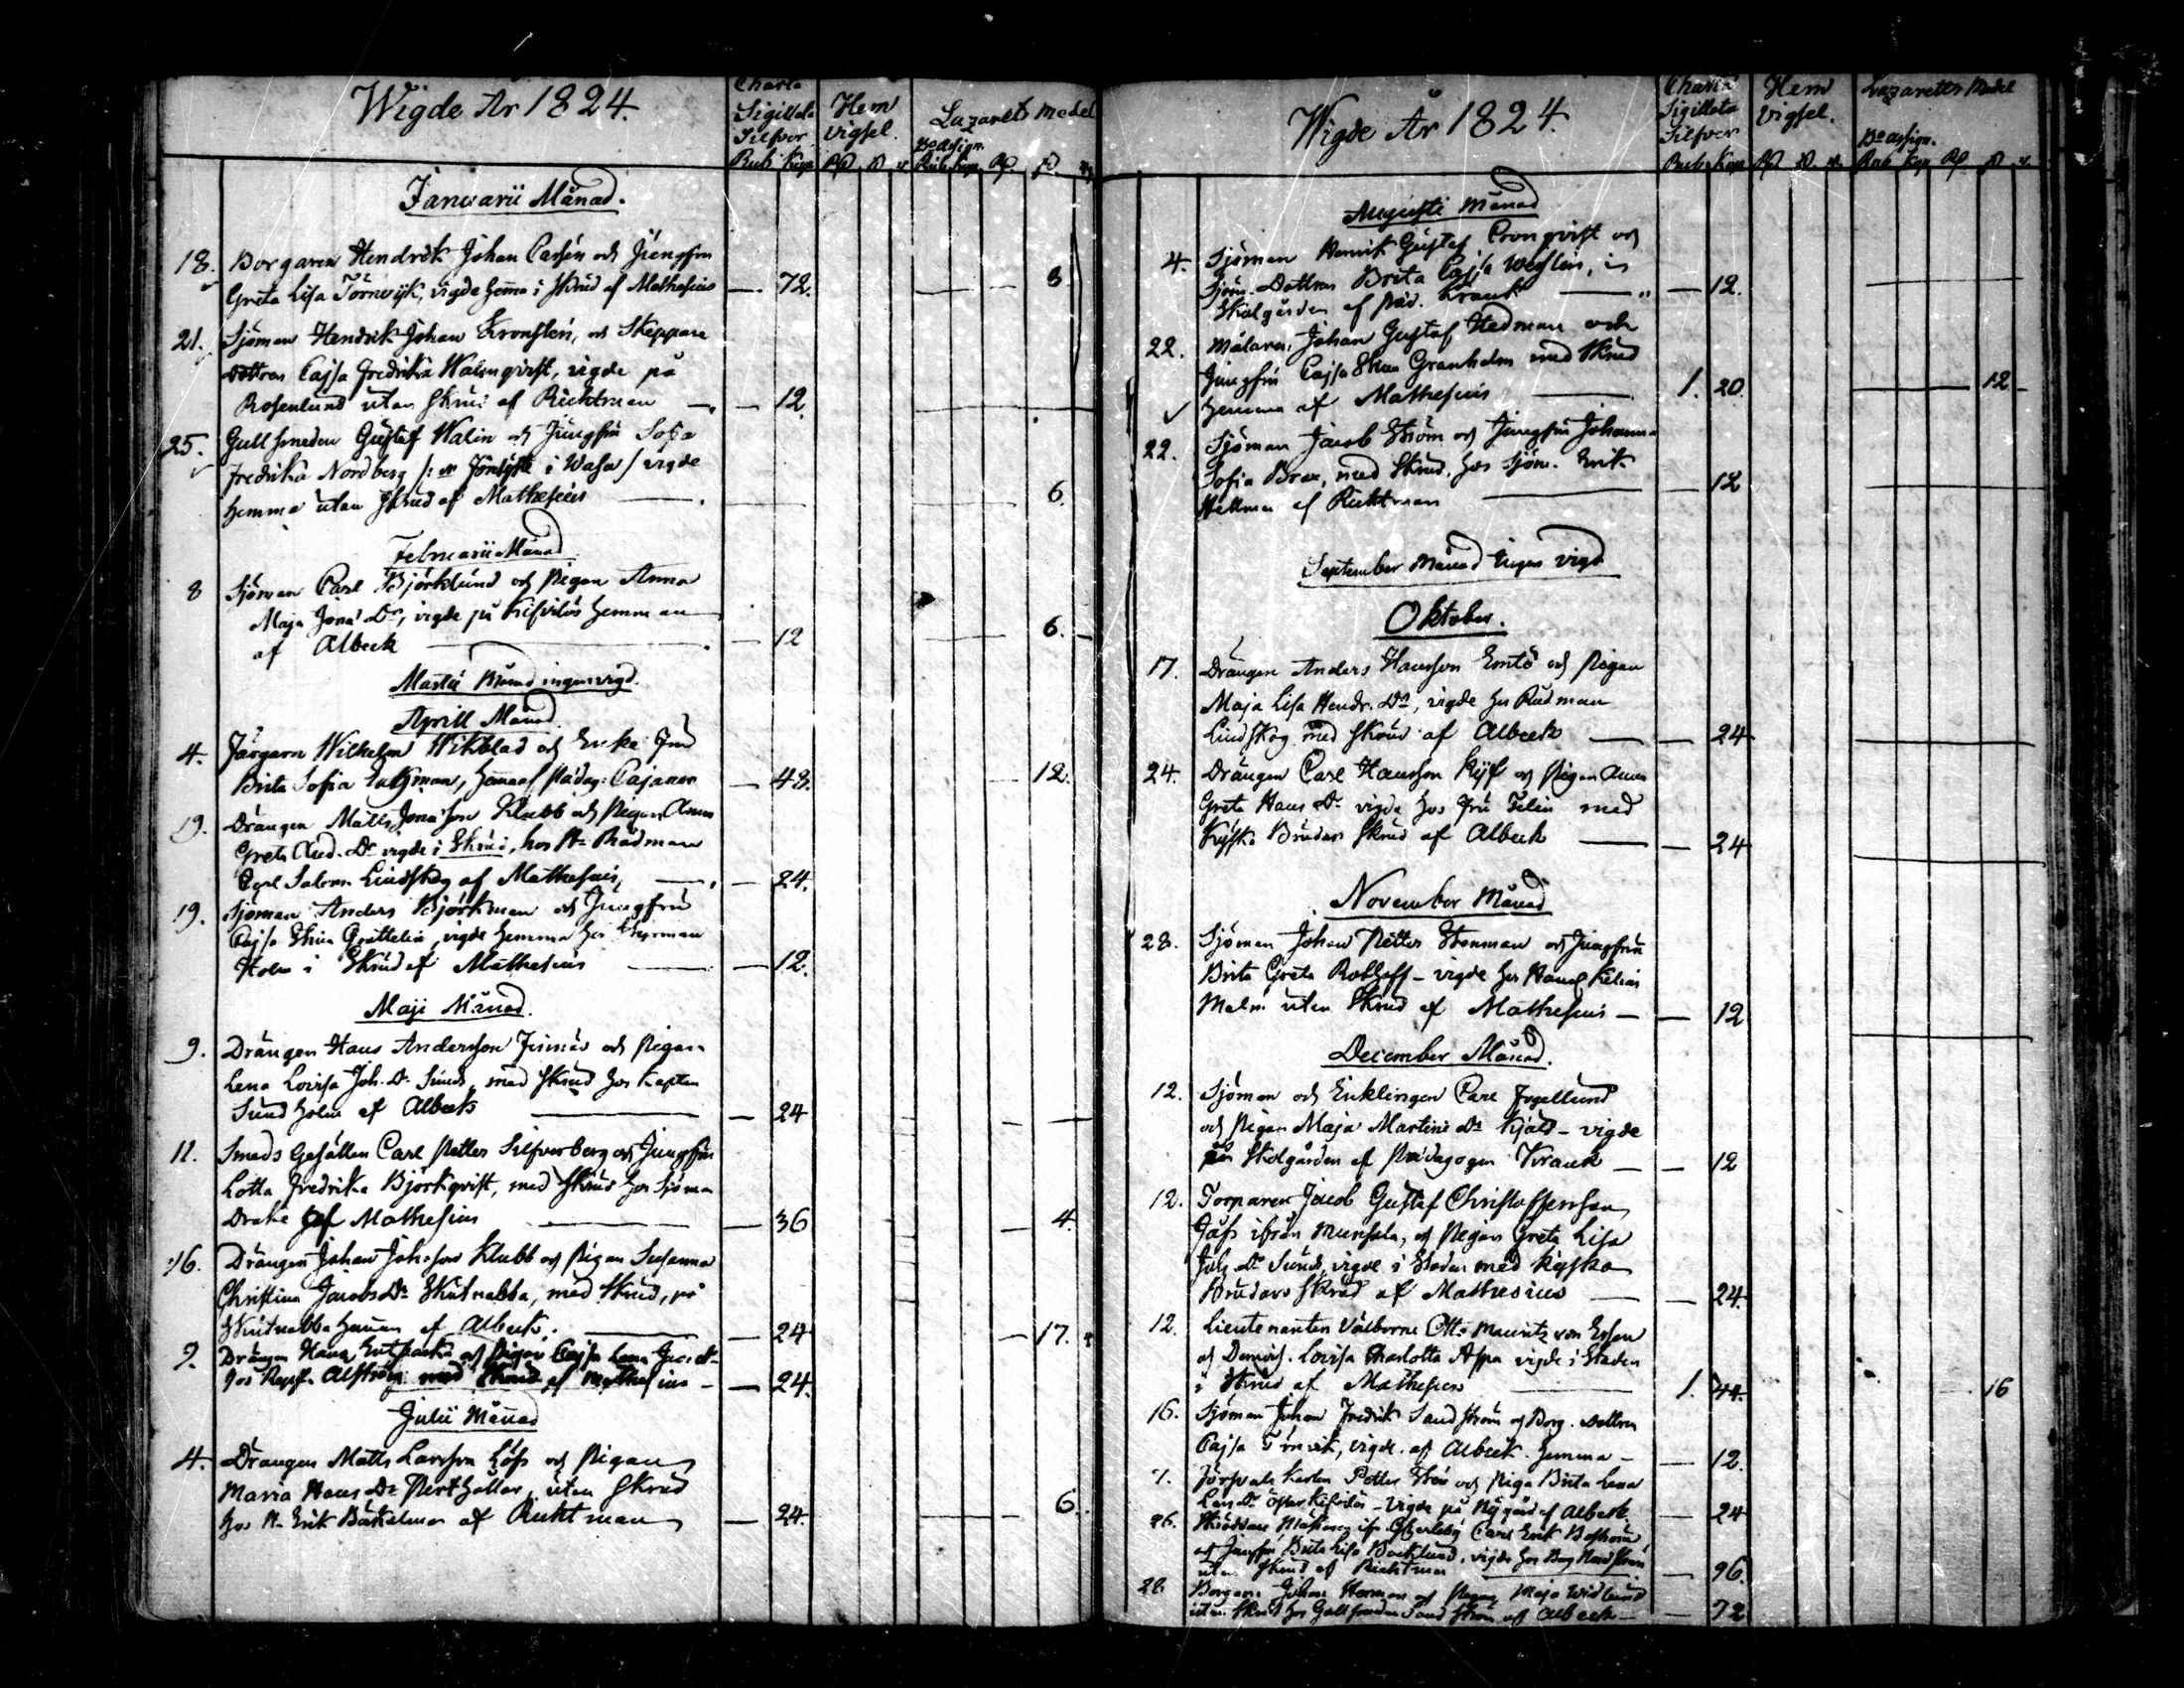 Wigde År 1824.
Charta Sigillata Silfver Rub. Kop.
Hem vigsel. Rß ß r
Lazarets Medel Bo assign. Rub. Kop. Rß ß r
Januarii Månad.
18. Borgaren Hendrik Johan Carlén och Jungfru
Greta Lisa Törnwijk, vigde hema i Skrud af Mathesius — 72. — 3.
21. Sjöman Hendrik Johan Kronsten, och Skeppare
dottren Cajsa Fredrika Malmqvist, vigde på
Rosenlund utan Skrud af Ricktman — 12.
25. Gullsmeden Gustaf Walin och Jungfru Sofia
Fredrika Nordberg /: i Wasa / vigde
hemma utan Skrud af Mathesius — 6.
Februarii Månad
8 Sjöman Carl Björklund och Pigan Anna
Maja Jona Dr, vigde på Kifvilös hemman
af Albeck — 12 — 6.
Martii Månad ingen vigd.
Aprill Månad.
4. Färgarn Wilhelm Wikblad och Enke Fru
Brita Sofia, hema af Pædag: Cajanus — 48. — 12.
19. Drängen Matts Jonasson Klubb och Pigan Anna
Greta And. Dr vigde i Skrud, hos Hr Rådman
Carl Salomon Lindskog af Mathesius, — 24.
19. Sjöman Anders Björkman och Jungfru
Cajsa Stina, vigde hemma hos Styrman
Holm i Skrud af Mathesius — 12.
Maji Månad.
9. Drängen Hans Andersson och Pigan
Lena Lovisa Joh. Dr Sund, med Skrud hos Kapten
Sundholm af Albeck — 24
11. Smeds Gesällen Carl Petter Silfverberg och Jungfru
Lotta Fredrika Björkqvist, med Skrud hos Sjöman
Drake af Mathesius — 36 — 4.
16. Drängen Johan Johsson Klubb och Pigan Susanna
Christina Jacobs Dr Skutnabba, med Skrud, på
Skutnabba heman af Albeck. — 24 — 17. 4
9. Drängen Hans och Pigan Cajsa Lena
hos Alström med Skrud af Mathesius — 24.
Julii Månad
4. Drängen Matts Larsson Löfs och Pigan
Maria Hans Dr, utan Skrud
hos Hr Erik Backman af Ricktman — 24. — 6.
Wigde År 1824.
Charta Sigillata Silfver Rub Kop
Hem vigsel. Rß ß r
Lazaretts Medel Bo assign. Rub Kop Rß ß r
Augusti Månad
4. Sjöman Henrik Gustaf Cronqvist och
Sjöm. Dottren Brita Cajsa, i
Skolgården af Pæd. Kranck — 12.
22. Målaren Johan Gustaf Hedman och
Jungfru Cajsa Stina Granholm med Skrud
hemma af Mathesius — 1. 20. — 12 —
22. Sjöman Jacob Ström och Jungfru Johanna
Sofia Brax, med Skrud hos Sjöm. Erik
Hellman af Ricktman — 12
September Månad Ingen vigd
Oktober.
17. Drängen Anders Hansson och Pigan
Maja Lisa Hendr. Dr, vigde hos Rådman
Lindskog med Skrud af Albeck — 24
24. Drängen Carl Hansson och Pigan Anna
Greta Hans Dr vigde hos Fru med
Kyska Brudars Skrud af Albeck — 24
November Månad
28. Sjöman Johan Petter Stenman och Jungfru
Brita Greta — vigde hos
Malm utan Skrud af Mathesius — 12
December Månad.
12. Sjöman och Enklingen Carl Fogellund
och Pigan Maja Martins Dr — vigde
på Skolgården af Pædagogen Kranck — 12
12. Torparen Jacob Gustaf Christoffersson
ifrån Munsala, och Pigan Greta Lisa
Joh. Dr Sund, vigde i Staden med kyska
Brudars Skrud af Mathesius — 24.
12. Lieutenanten Välborne Otto Mauritz von Essen
och Demois. Lovisa Charlotta vigde i Staden
i Skrud af Mathesius — 1. 44. — 16
16. Sjöman Johan Fredrik Sandström och Borg. Dottren
Cajsa, vigde af Albeck hemma — 12.
Petter och Piga Brita Lena
Lars Dr — vigde på Nygård af Albeck — 24
26. Carl Erik
och Jungfru Brita Lisa Backlund, vigde hos Borg.
utan Skrud af Ricktman — 96.
28 Borgaren Johan Herman och Pigan Maja Widlund
utan Skrud hos Gullsmeden Sandström af Albeck — 72